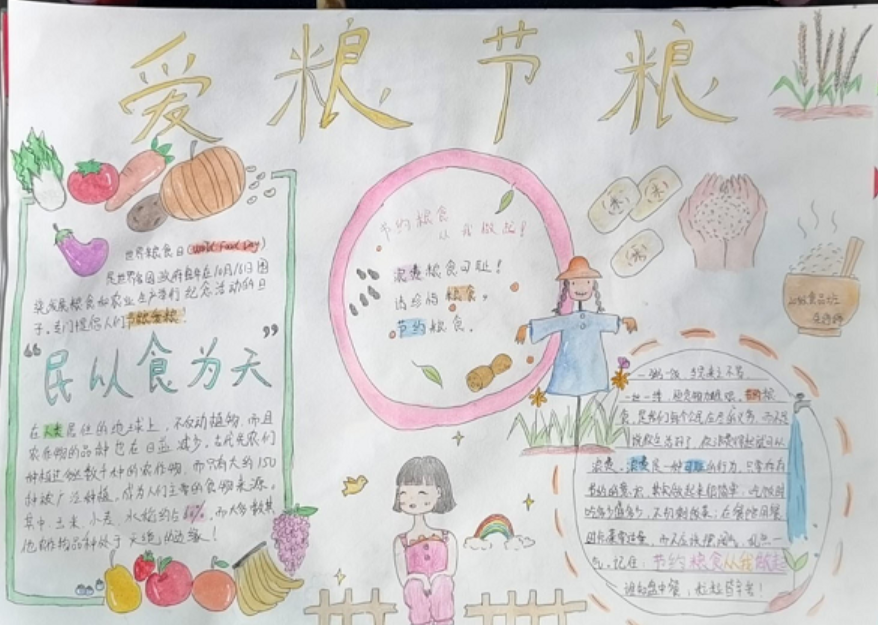 爱粮节粮
世界粮食日(World Food Day)
是世界各国政府每年在10月16日围
绕发展粮食和农业生产举行纪念活动的日
子,专门提倡人们节粮爱粮!
“民以食为天”
在人类居住的地球上,不仅动植物,而且
农作物的品种也在日益减少。古代先农们
种植过的数千种的农作物,而只有大约150
种被广泛种植,成为人们主要的食物来源。
其中,玉米、小麦、水稻约占60%,而大多数其
他农作物品种处于灭绝的边缘!
节约粮食
从我做起!
浪费粮食可耻!
请珍惜粮食,
节约粮食。
米
米
米
一粥一饭,当思来之不易
一丝一缕,恒念物力维艰。节约粮
食,是我们每个公民应尽的义务,而不是
浪费,浪费是一种可耻的行为,只要存有
节约的意识,其实做起来很简单:吃饭时
吃多少盛多少,不扔剩饭菜;在餐馆用餐
时点菜要适量,而不应该摆阔气,乱点一
气。记住:节约粮食从我做起
谁知盘中餐,粒粒皆辛苦!